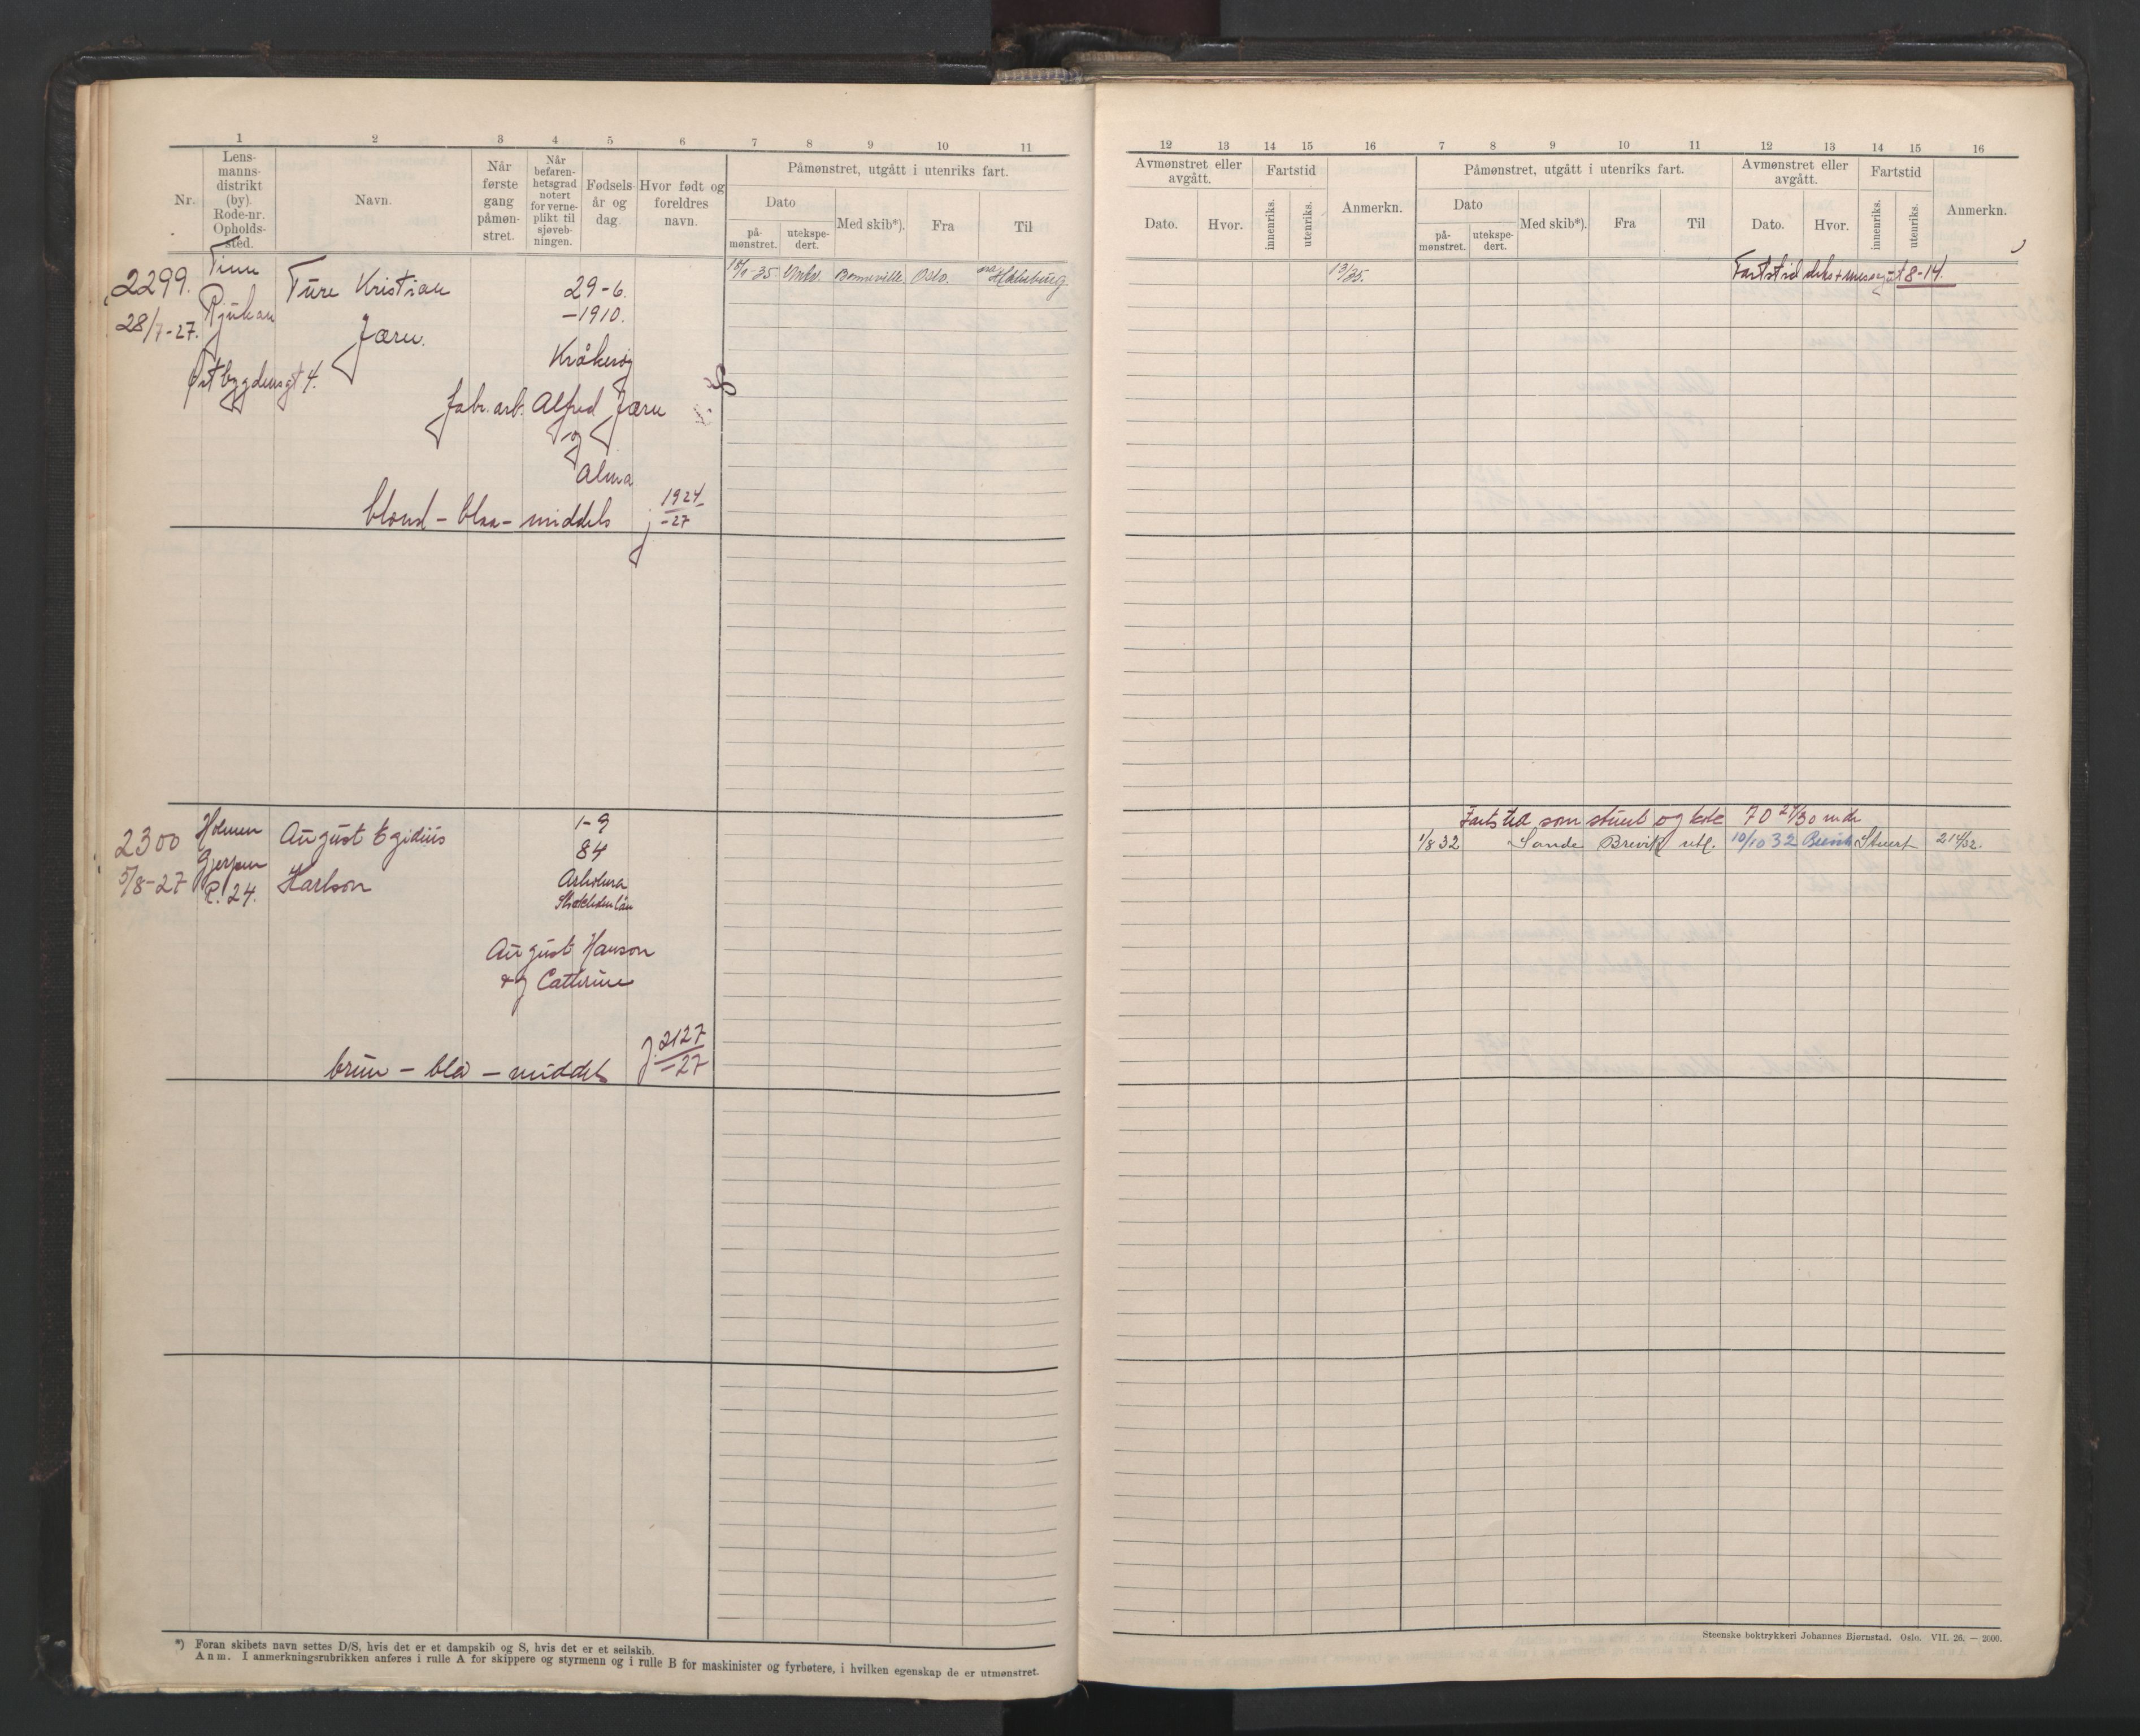 1 2 3 4 5 6 7 8 9 10 11
Nr.
Lens-
manns-
distrikt
(by).
Rode-nr.
Opholds-
sted.
Navn.
Når
første
gang
påmøn-
stret.
Når
befaren-
hetsgrad
notert
for verne-
plikt til
sjøveb-
ningen.
Fødsels-
år og
dag.
Hvor født og
foreldres
navn.
Påmønstret, utgått i utenriks fart.
Dato
på-
mønstret.
utekspe-
dert.
Med skib*).
Fra
Til
2299.
28/7-27.
Tinn
Rjukan
Østbygdensgt 4.
Ture Kristian
Jæru.
29-6.
-1910.
Kråkerøy
fabr. arb. Alfred Jæru
og
Alma
blond - blaa - middels j 1924
-27
-35 Bonneville Oslo.
2300
5/8-27
Holmen
Gjerpen
R. 24.
August Egidius
Karlson
1-9
84
Arholma
August Hanson
og Catterine
brun - blå - middels j. 2127
-27
*) Foran skibets navn settes D/S, hvis det er et dampskib og S, hvis det er et seilskib.
Anm. I anmerkningsrubrikken anføres i rulle A for skippere og styrmenn og i rulle B for maskinister og fyrbøtere, i hvilken egenskap de er utmønstret.
12 13 14 15 16 7 8 9 10 11 12 13 14 15 16
Avmønstret eller
avgått.
Dato.
Hvor.
Fartstid
innenriks.
utenriks.
Anmerkn.
Påmønstret, utgått i utenriks fart.
Dato
på-
mønstret.
utekspe-
dert.
Med skib*).
Fra
Til
Avmønstret eller
avgått.
Dato.
Hvor.
Fartstid
innenriks.
utenriks.
Anmerkn.
13/35. Fartstid 8-14.
Fartstid som stuert og kok 70 27/30 mdr
1/8 32 Sande Brevik utl. 10/10 32 Stuert
Steenske boktrykkeri Johannes Bjørnstad. Oslo. VII. 26. — 2000.